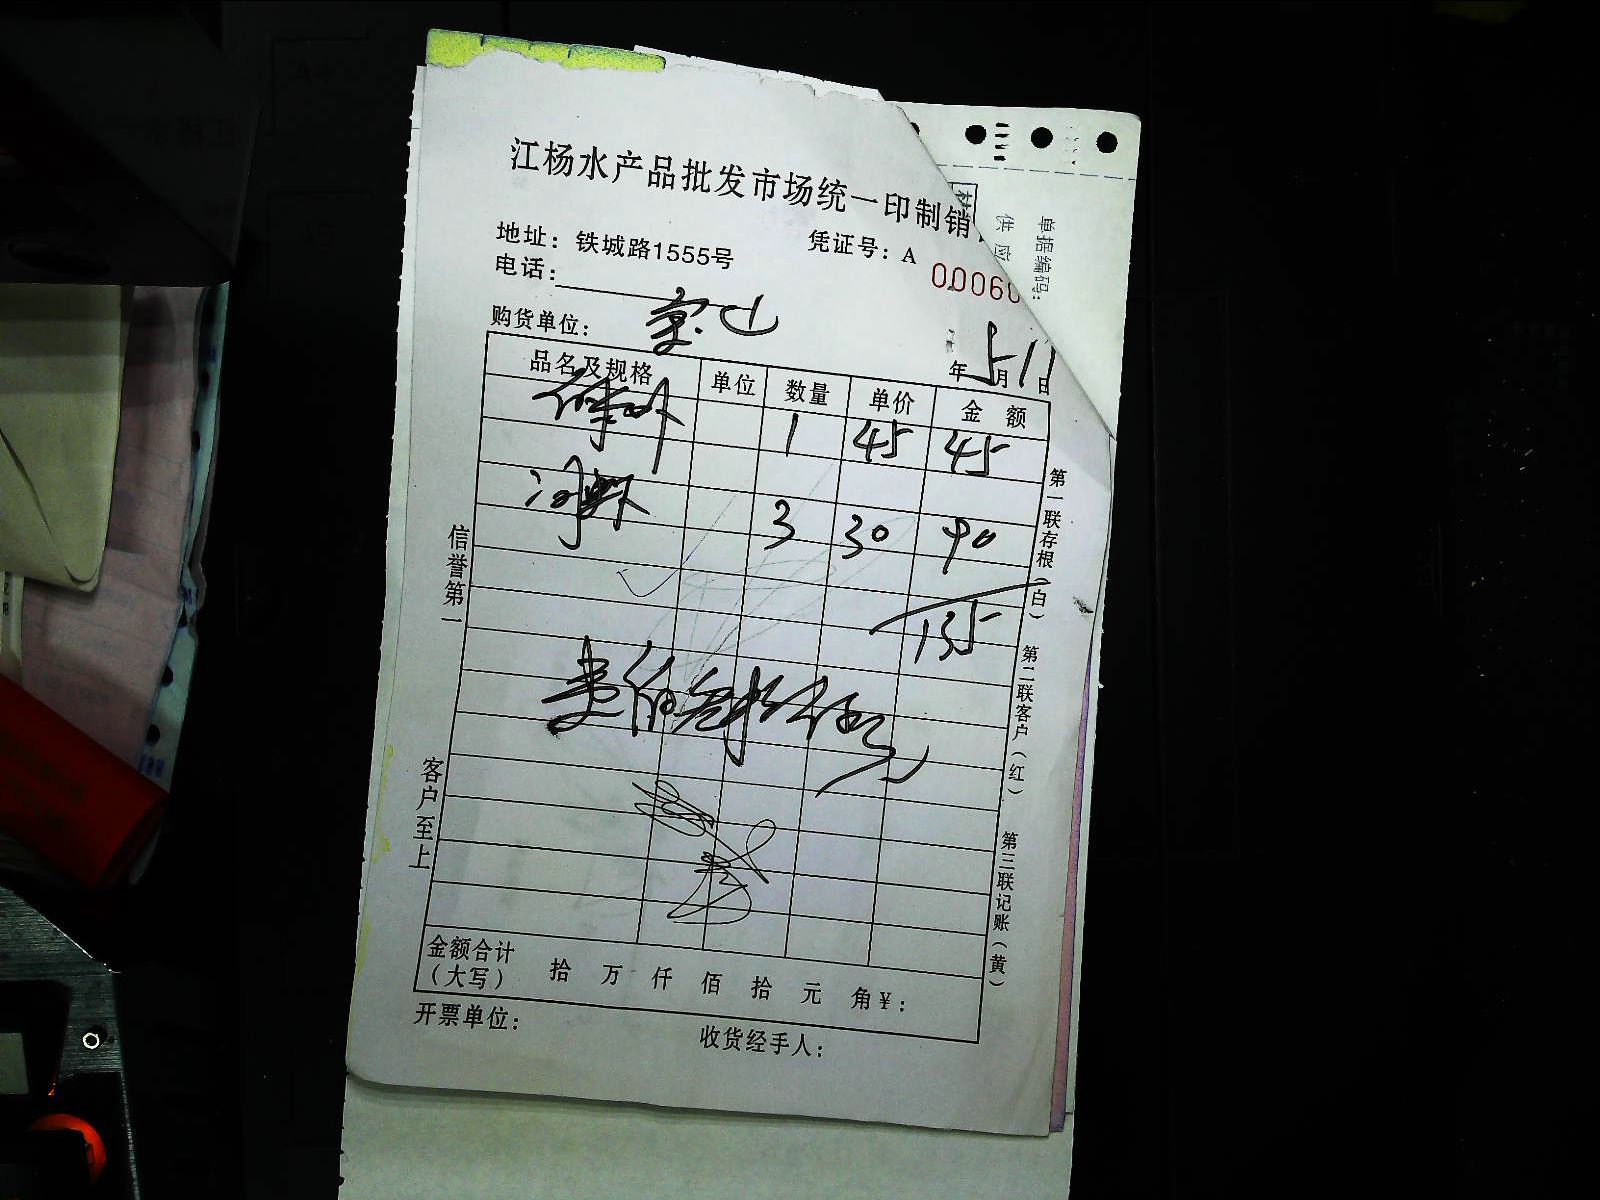 江杨水产品批发市场统一印制销
单据编码:
供应
地址: 铁城路1555号
凭证号: A 00060
电话:
购货单位: 宝山
年 5月11日
品名及规格 单位 数量 单价 金额
1 45 45
河虾 3 30 90
135
壹佰叁拾伍元
信誉第一
客户至上
第一联存根(白)
第二联客户(红)
第三联记账(黄)
金额合计(大写) 拾 万 仟 佰 拾 元 角 ¥:
开票单位:
收货经手人: